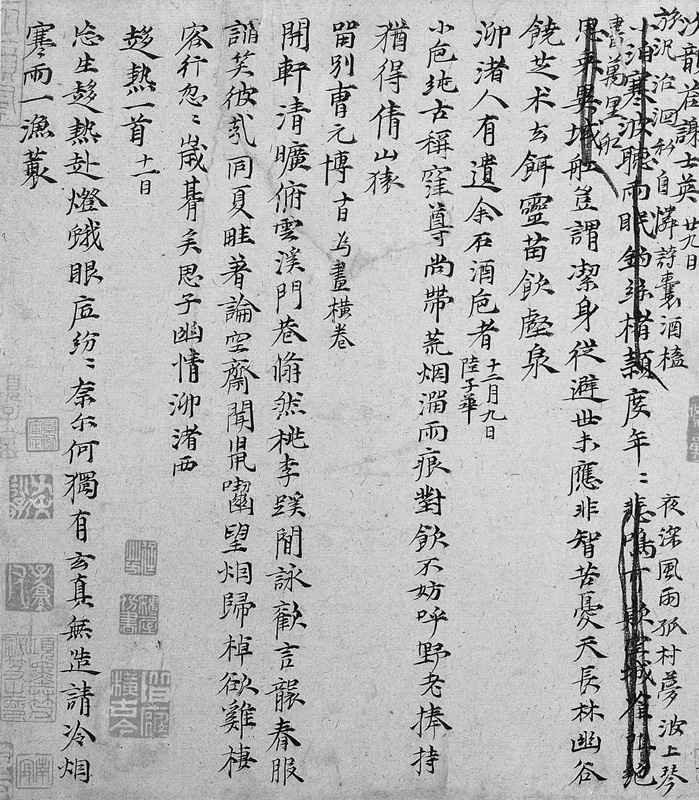 答謝士英 廿九日
旅況沿洄於自憐詩囊酒榼
書萬里船
小泊寒波聽雨眠 度年〻
夜深風雨孤村夢波上琴
思 異域 豈謂潔身從避世未應非智苦憂天長林幽谷
饒芝朮玄餌靈苗飲壑泉
泖渚人有遺余石酒卮者 十二月九日 陸子華
小卮純古稱窪尊尚帶荒烟溜雨痕對飲不妨呼野老捧持
猶得倩山猿
留別曹元博 十日 為畫橫卷
開軒清曠俯雲溪門巷翛然桃李蹊閒詠歡言裁春服
諧笑彼我同夏畦著論空齋聞鼠囓望烟歸棹欲雞棲
客行忽〻歲朞矣思子幽情泖渚西
趍熱一首 十一日
忘生趍熱赴燈蛾眼底紛〻奈尔何獨有玄真無造請冷烟
寒雨一漁蓑